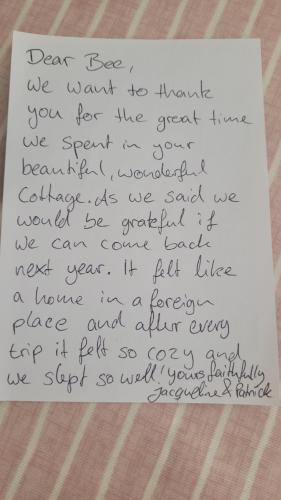 Dear Bee,
We want to thank
you for the great time
we spent in your
beautiful, wonderful
Cottage. As we said we
would be grateful if
we can come back
next year. It felt like
a home in a foreign
place and after every
trip it felt so cozy and
we slept so well! Yours faithfully
Jacqueline & Patrick